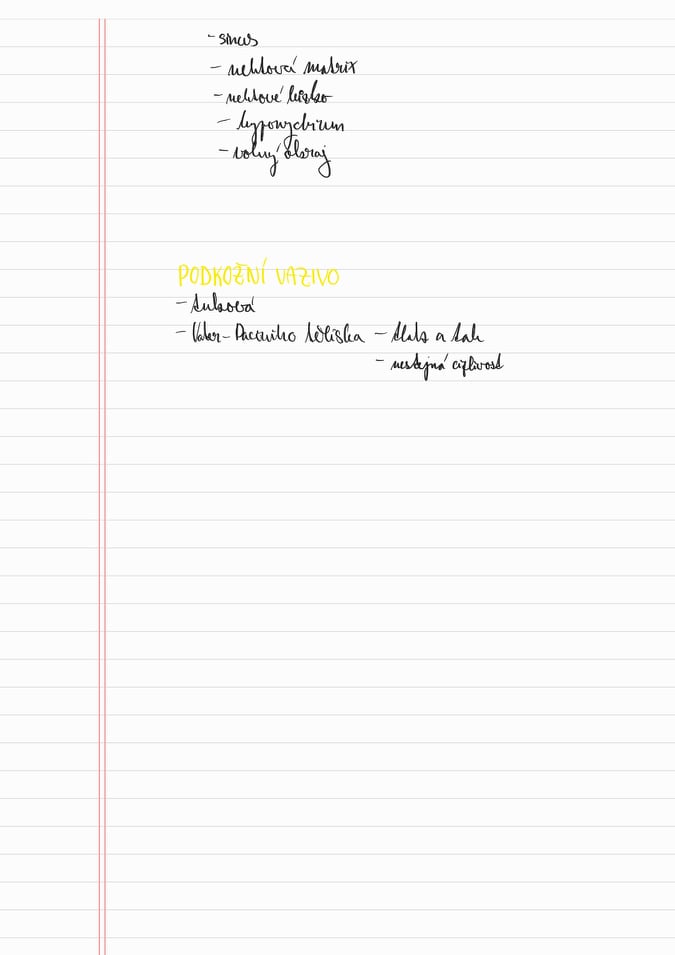 - sinus
- nehtová matrix
- nehtové lůžko
- hyponychium
- volný okraj
PODKOŽNÍ VAZIVO
- tuková
- Vater-Paciniho tělíska - tlak a tah
- nestejná citlivost